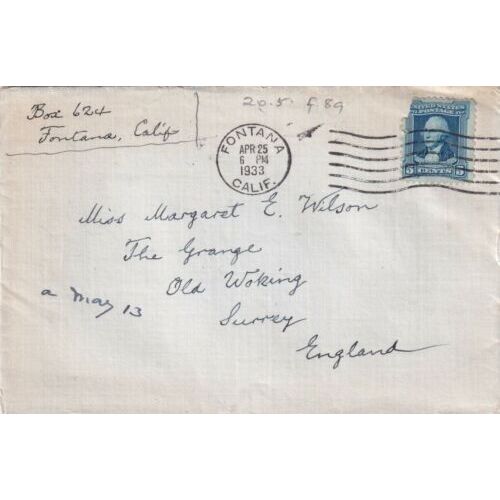 Box 624
Fontana, Calif
20.5. f 89
FONTANA
APR 25
6 PM
1933
CALIF.
UNITED STATES
POSTAGE
5 CENTS 5
Miss Margaret E. Wilson
The Grange
Old Woking
Surrey
England
a May 13